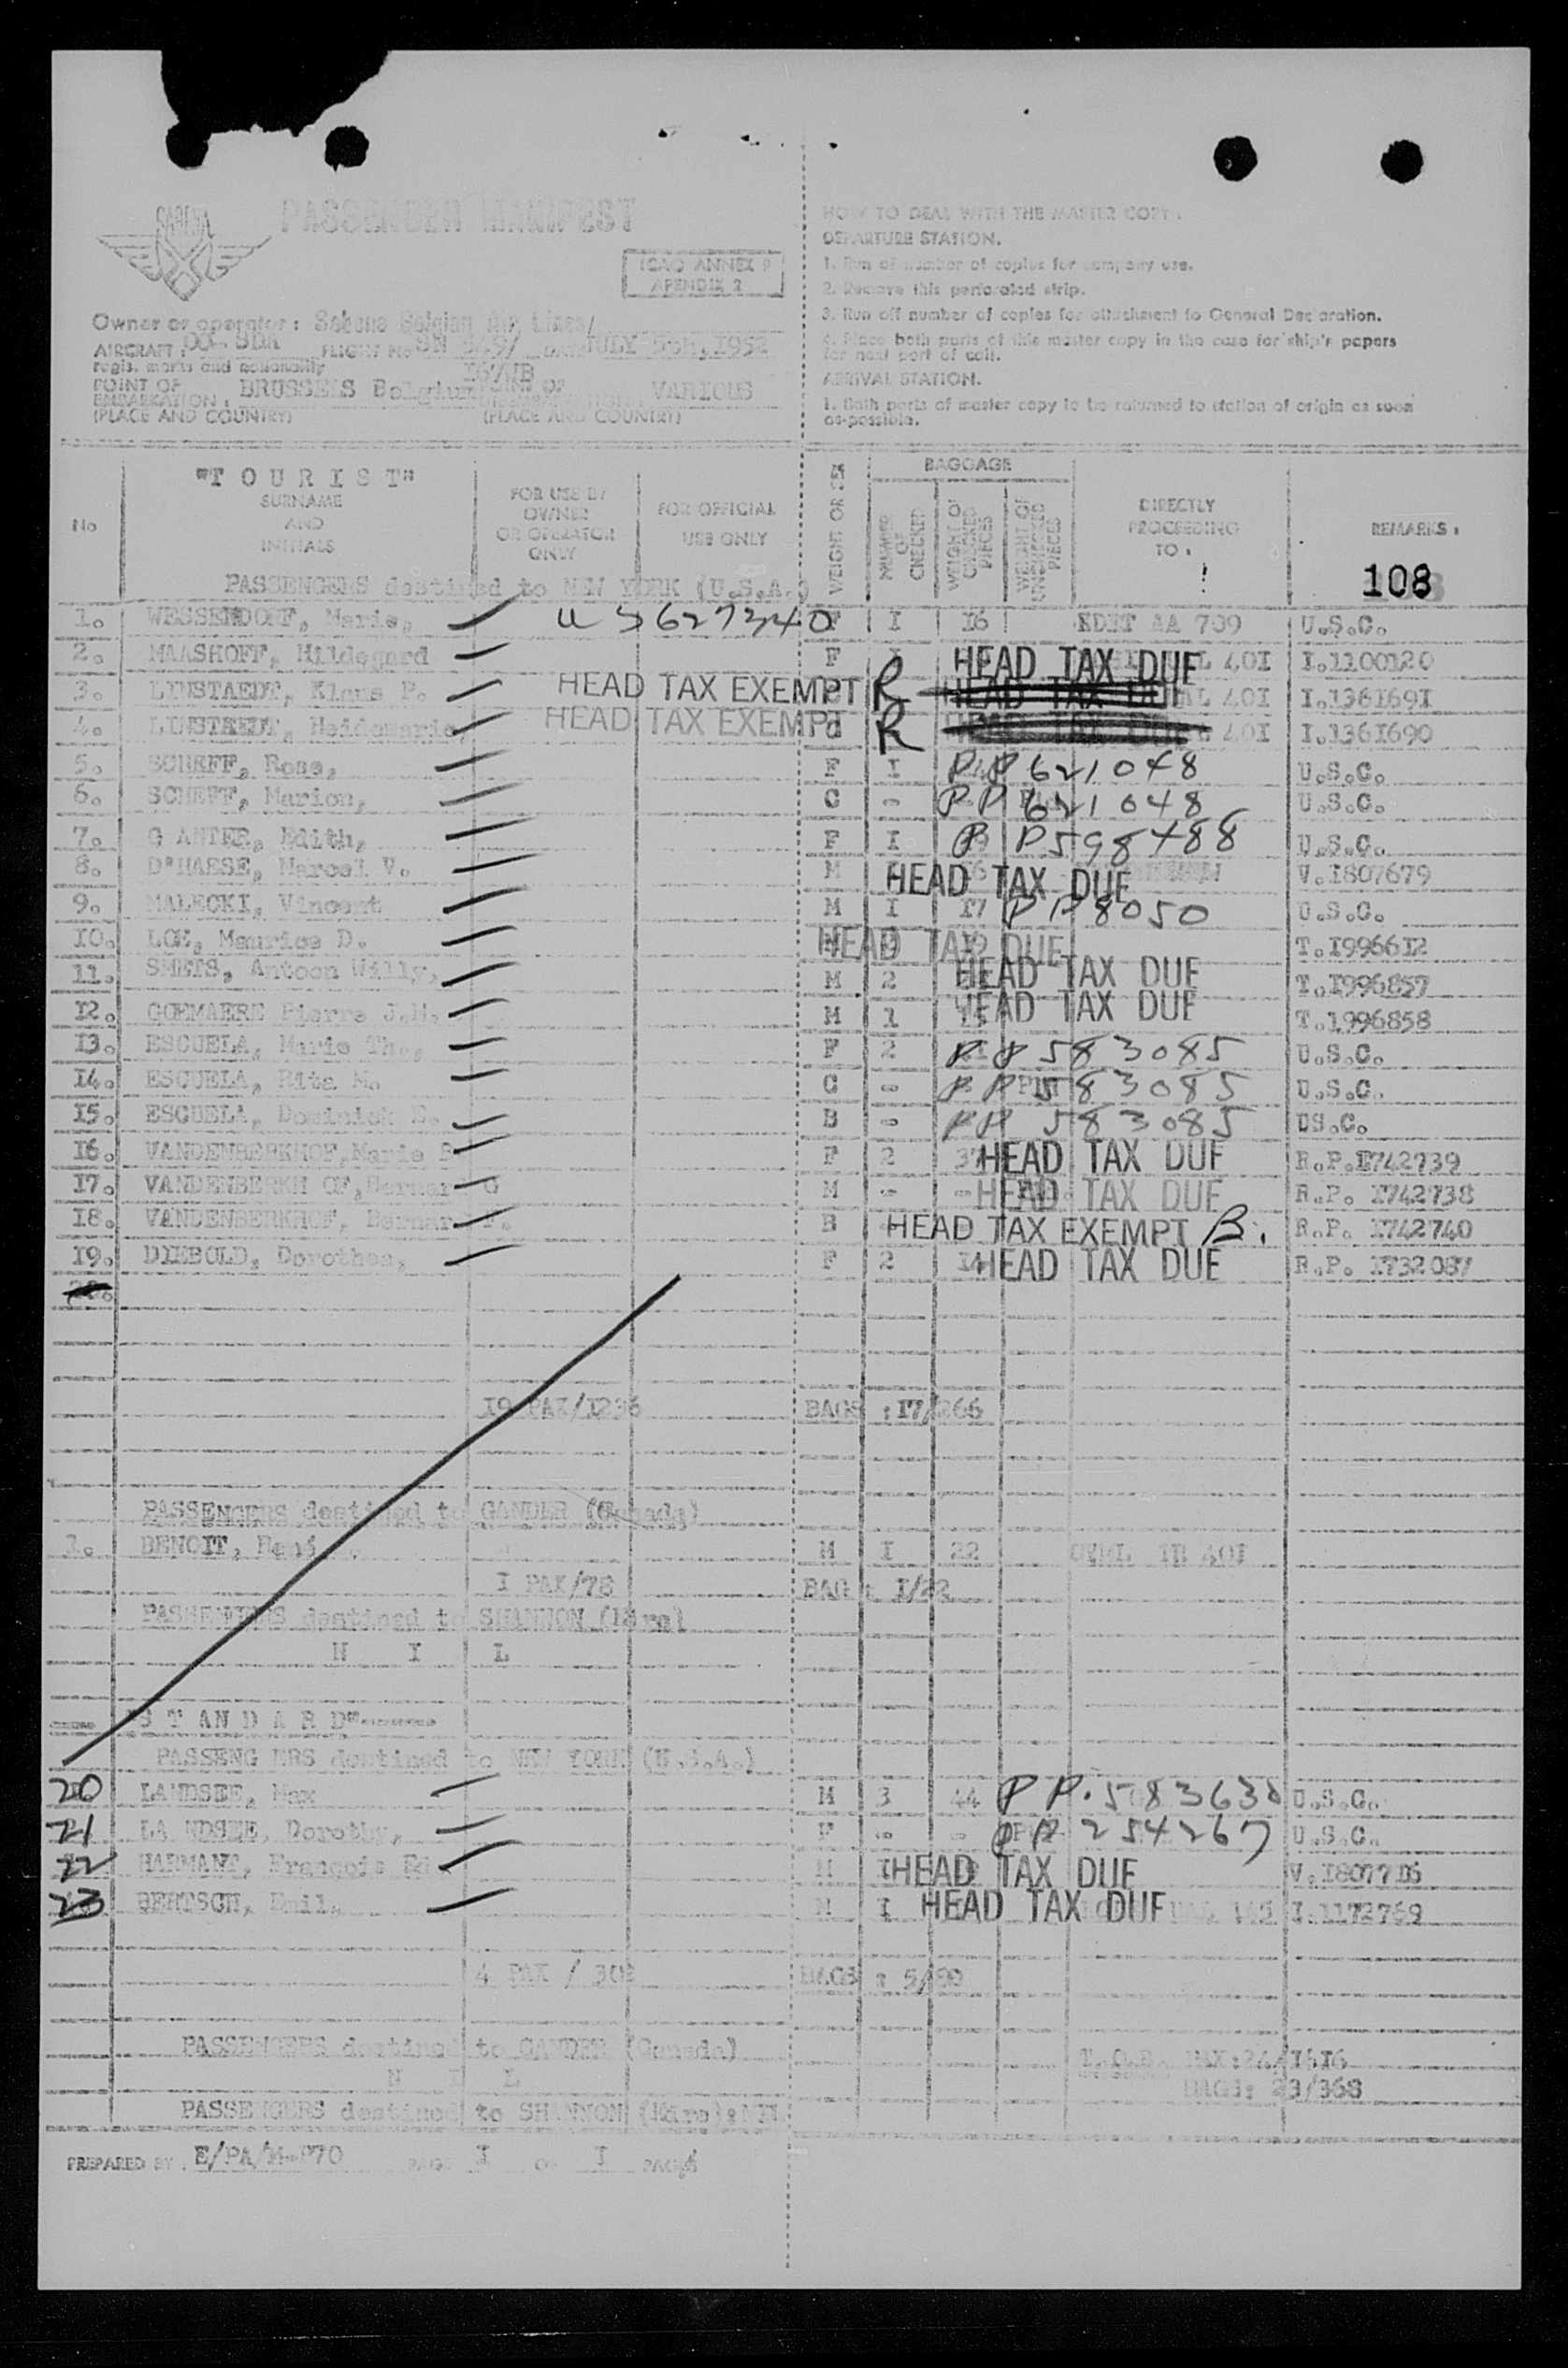 SABENA
PASSENGER MANIFEST
ICAO ANNEX 9
APENDIX 2
Owner or operator : Sabena Belgian Air Lines/
AIRCRAFT : OO- SDR FLIGHT No SN 545/ DATE JULY 5th, I952
regis. marks and nationality I67/UB
POINT OF EMBARKATION : BRUSSELS Belgium POINT OF VARIOUS
(PLACE AND COUNTRY) (PLACE AND COUNTRY)
HOW TO DEAL WITH THE MASTER COPY :
DEPARTURE STATION.
1. Run of number of copies for company use.
2. Remove this perforated strip.
3. Run off number of copies for attachment to General Declaration.
4. Place both parts of this master copy in the case for ship's papers
for next port of call.
ARRIVAL STATION.
1. Both parts of master copy to be returned to station of origin as soon
as possible.
No
"T O U R I S T"
SURNAME
AND
INITIALS
FOR USE BY
OWNER
OR OPERATOR
ONLY
FOR OFFICIAL
USE ONLY
WEIGHT OR SEX
BAGGAGE
NUMBER OF CHECKED
WEIGHT OF CHECKED PIECES
WEIGHT OF UNCHECKED PIECES
DIRECTLY
PROCEEDING
TO :
REMARKS :
108
PASSENGERS destined to NEW YORK (U.S.A.)
1. WESSENDORF, Marie, U S 627340 F I I6 KDET AA 709 U.S.C.
2. MAASHOFF, Hildegard F HEAD TAX DUE 40I I.1100120
3. LINSTAEDT, Klaus P. HEAD TAX EXEMPT R HEAD TAX DUE 40I I.136I69I
4. LINSTAEDT, Heidemarie, HEAD TAX EXEMPT C R 40I I.136I690
5. SCHEFF, Rose, F I PP 621048 U.S.C.
6. SCHEFF, Marion, C - PP 621048 U.S.C.
7. G ANTER, Edith, F I PP 598488 U.S.C.
8. D'HAESE, Marcel V. M HEAD TAX DUE V.I807679
9. MALECKI, Vincent M I I7 PP 8050 U.S.C.
I0. LOX, Maurice D. HEAD TAX DUE T.I9966I2
11. SMETS, Antoon Willy, M 2 HEAD TAX DUE T.I996857
I2. GOEMAERE Pierre J.H. M 1 I5 HEAD TAX DUE T.1996858
I3. ESCUELA, Marie The, F 2 2I PP 583085 U.S.C.
I4. ESCUELA, Rita M. C - PP 583085 U.S.C.
I5. ESCUELA, Dominick E. B - PP 583085 US.C.
I6. VANDENBERKHOF, Marie F 2 37 HEAD TAX DUE R.P.I742739
I7. VANDENBERKH OF, Bernar G M - - HEAD TAX DUE R.P. I742738
I8. VANDENBERKHOF, Bernard F. B HEAD TAX EXEMPT B. R.P. I742740
I9. DIEBOLD, Dorothea, F 2 I4 HEAD TAX DUE R.P. I732087
20.
I9 PAX/I236 BAGS : I7/266
PASSENGERS destined to GANDER (Canada)
1. BENOIT, René M I 22 40I
I PAX/78 BAG : I/22
PASSENGERS destined to SHANNON (Eire)
N I L
S T A N D A R D"
PASSENG ERS destined to NEW YORK (U.S.A.)
20 LANDSEE, Max M 3 44 PP. 583630 U.S.C.
21 LA NDSEE, Dorothy, F - - PP 254267 U.S.C.
22 HARMANT, François Ed. M I HEAD TAX DUE V.I8077I6
23 BERTSCH, Emil, M I HEAD TAX DUE I.1172769
4 PAX / 302 BAGS : 5/80
PASSENGERS destined to GANDER (Canada)
N I L
PASSENGERS destined to SHANNON (Eire): NIL
T.O.B. PAX:24/I6I6
BAGS: 23/368
PREPARED BY : E/PA/M-970 PAGE I OF I PAGES